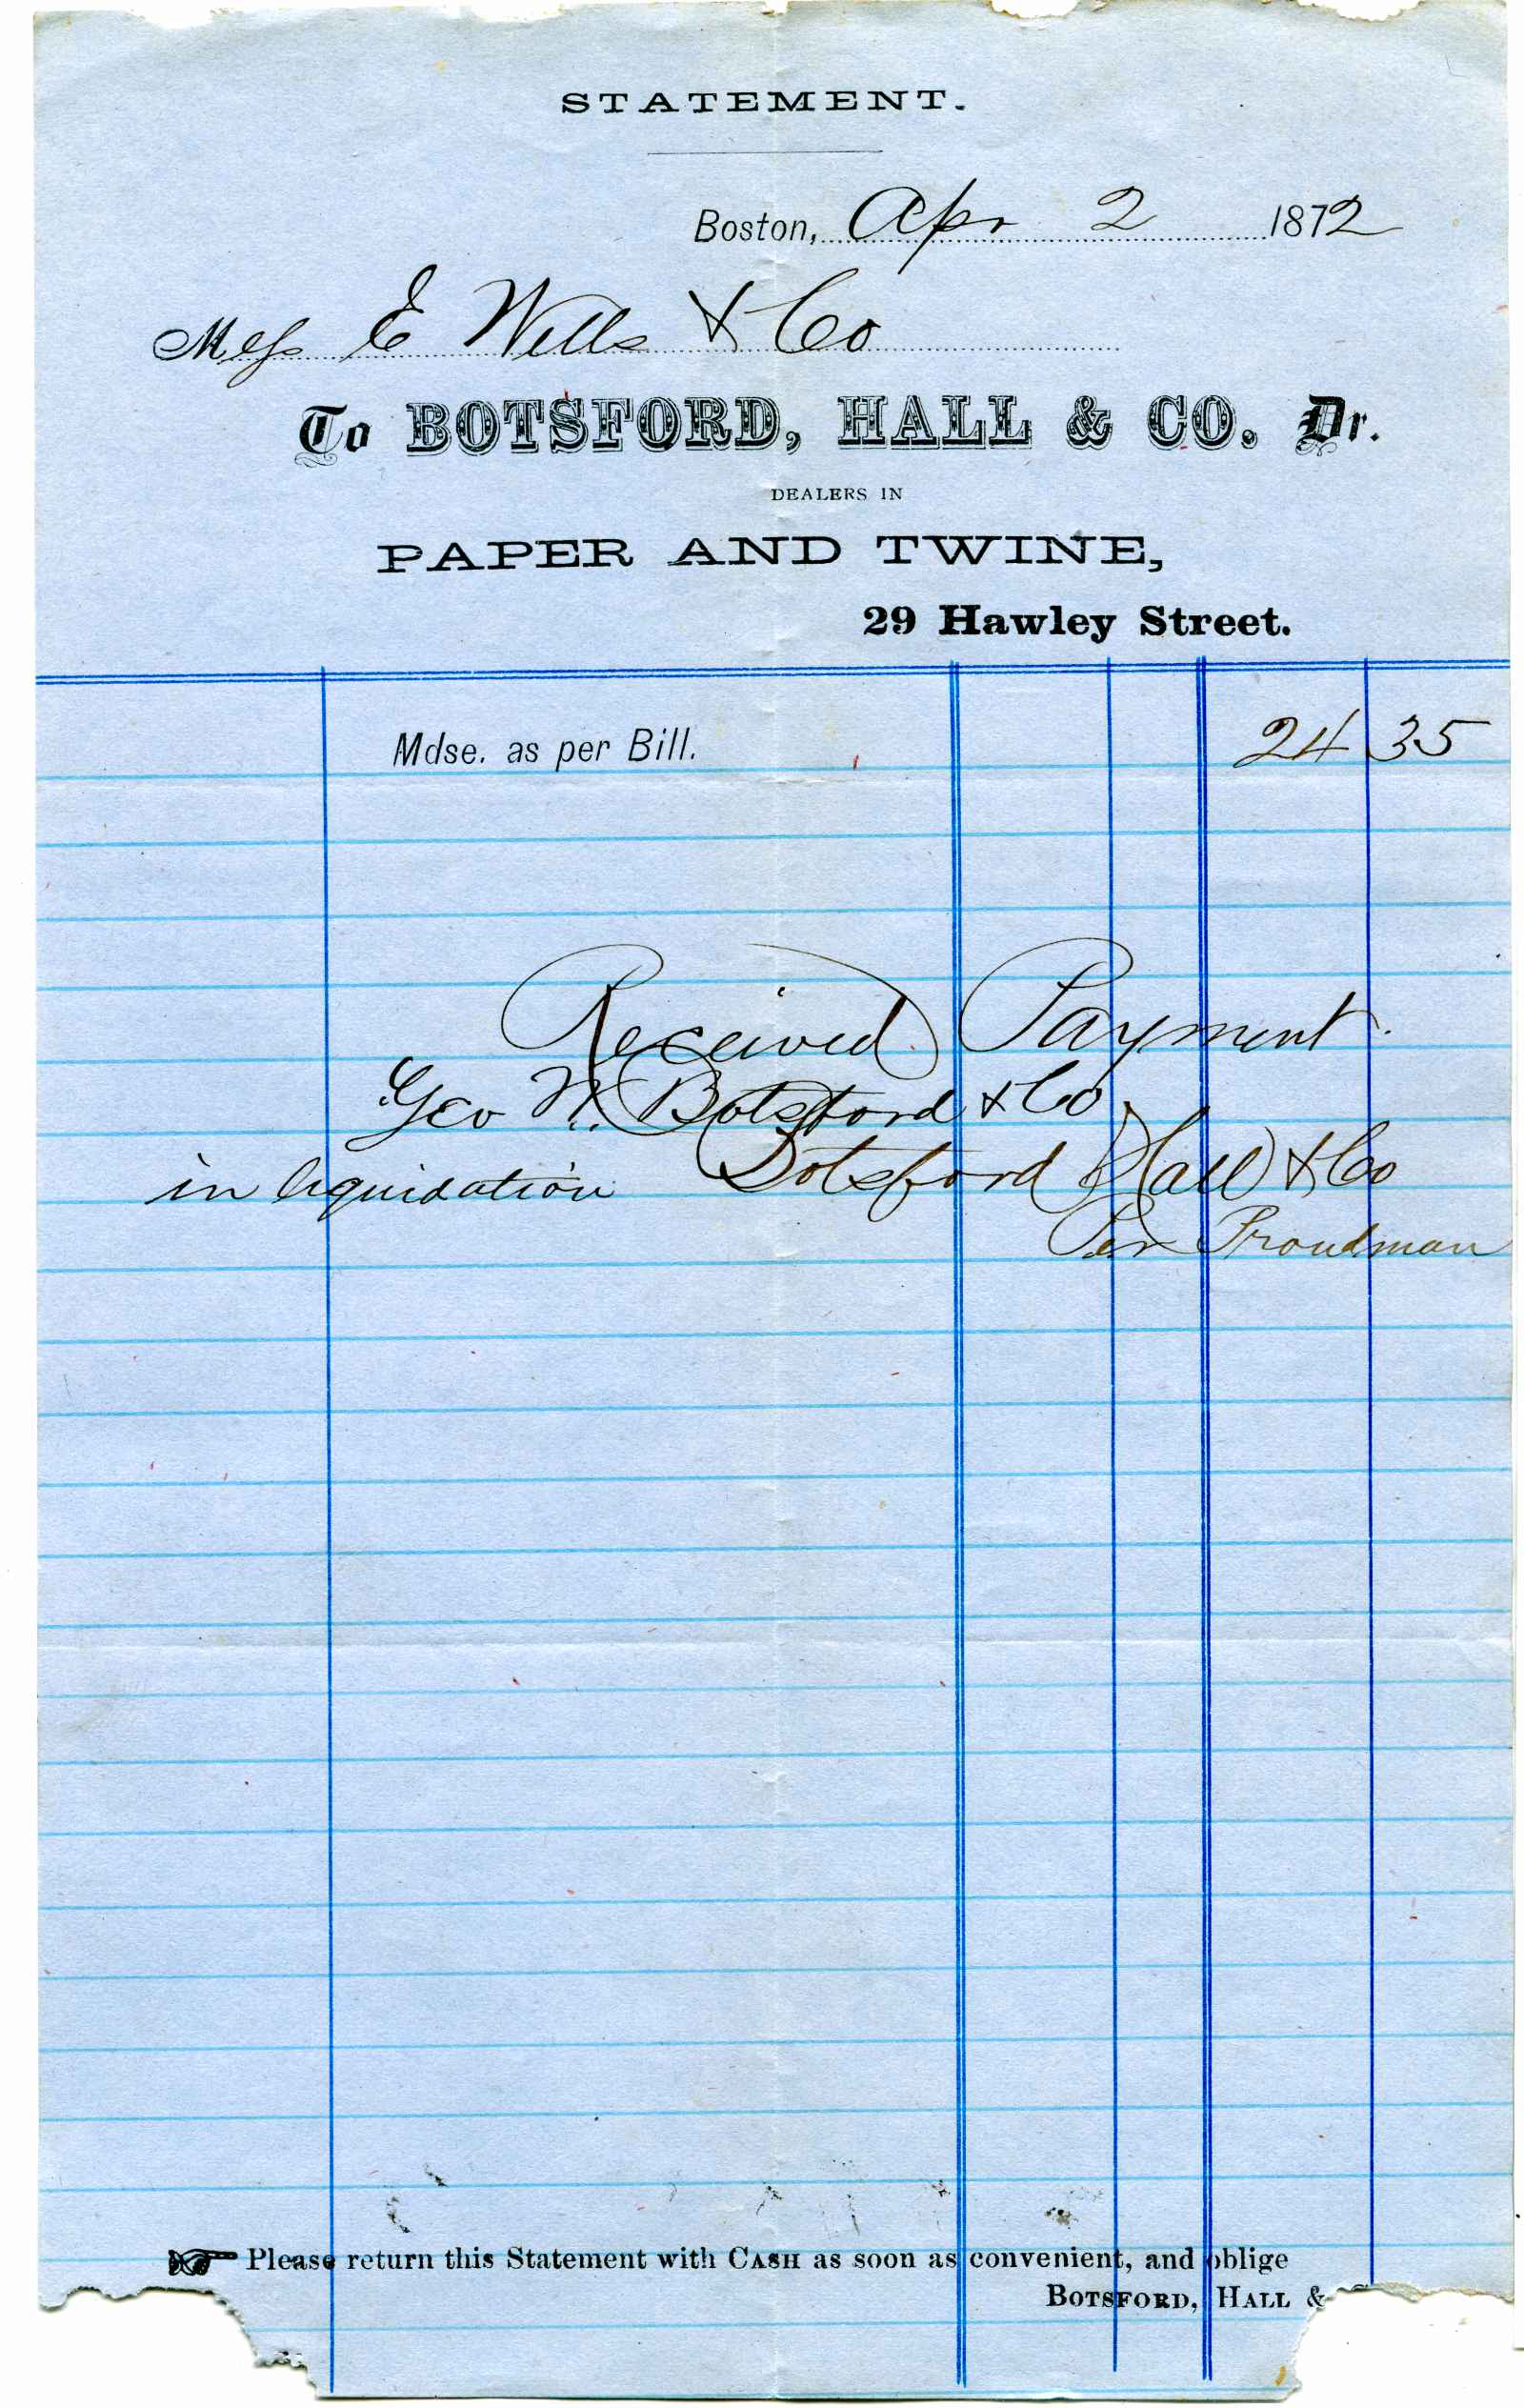 STATEMENT.
Boston, Apr 2 1872
Mess E Wells & Co
To BOTSFORD, HALL & CO. Dr.
DEALERS IN
PAPER AND TWINE,
29 Hawley Street.
Mdse. as per Bill. 24 35
Received Payment.
Geo W. Botsford & Co
in liquidation Botsford Hall & Co
Per Proudman
Please return this Statement with CASH as soon as convenient, and oblige
BOTSFORD, HALL &